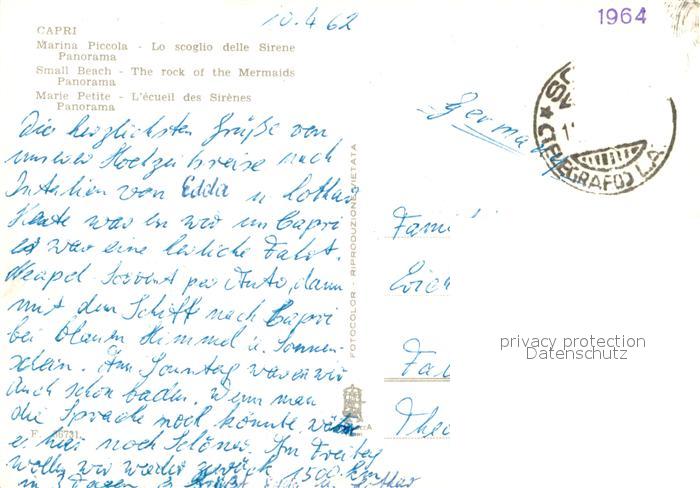 10.4.62
1964
CAPRI
Marina Piccola - Lo scoglio delle Sirene
Panorama
Small Beach - The rock of the Mermaids
Panorama
Marie Petite - L'écueil des Sirènes
Panorama
Die herzlichsten Grüße von
unserer Hochzeitsreise nach
von Edda u. Lothar
Heute war in Capri
es war eine herliche Fahrt.
Neapel - Sorrent per Auto, dann
mit dem Schiff nach Capri
bei blauen Himmel u. Sonnen-
schein. Am Sonntag waren wir
auch schon baden. Wenn man
die Sprache noch könnte, wäre
es hier noch Schöner. Am Freitag
wolln wir wieder zurück 1500 km
in 3 Tagen
Germany
Fami
Erich
The
FOTOCOLOR - RIPRODUZIONE VIETATA
privacy protection
Datenschutz